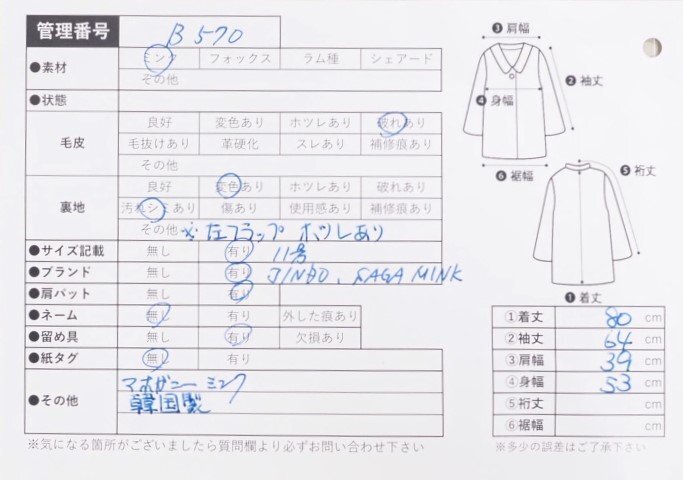 管理番号 B 570
●素材 ミンク フォックス ラム種 シェアード
その他
●状態
毛皮 良好 変色あり ホツレあり 破れあり
毛抜けあり 革硬化 スレあり 補修痕あり
その他
裏地 良好 変色あり ホツレあり 破れあり
汚れシミあり 傷あり 使用感あり 補修痕あり
その他 ※左フラップ ホツレあり
●サイズ記載 無し 有り 11号
●ブランド 無し 有り JINDO、SAGA MINK
●肩パット 無し 有り
●ネーム 無し 有り 外した痕あり
●留め具 無し 有り 欠損あり
●紙タグ 無し 有り
●その他 マホガニーミンク
韓国製
※気になる箇所がございましたら質問欄より必ずお問い合わせ下さい
❸肩幅
❷袖丈
❹身幅
❻裾幅
❺裄丈
❶着丈
①着丈 80 cm
②袖丈 64 cm
③肩幅 39 cm
④身幅 53 cm
⑤裄丈 cm
⑥裾幅 cm
※多少の誤差はご了承下さい